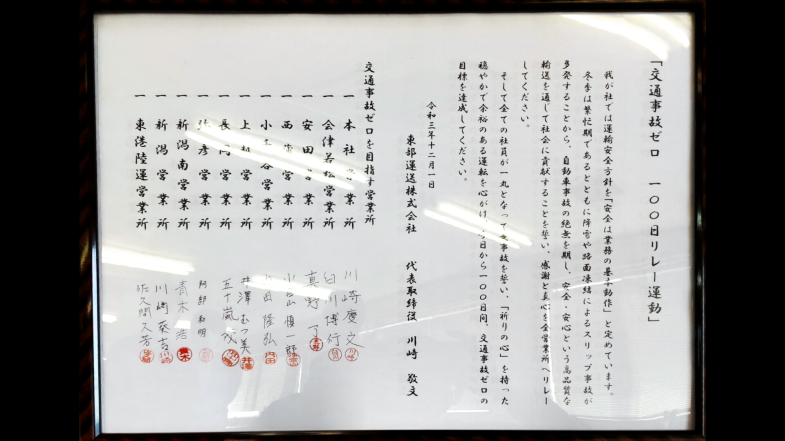 「交通事故ゼロ 一〇〇日リレー運動」
我が社では運輸安全方針を「安全は業務の基本動作」と定めています。
冬季は繁忙期であるとともに降雪や路面凍結によるスリップ事故が
多発することから、自動車事故の絶無を期し、安全・安心という高品質な
輸送を通して社会に貢献することを誓い、感謝と真心を全営業所へリレー
してください。
そして全ての社員が一丸となって無事故を誓い、「祈りの心」を持った
穏やかで余裕のある運転を心がけ、今日から一〇〇日間、交通事故ゼロの
目標を達成してください。
令和三年十二月一日
東部運送株式会社 代表取締役 川崎 敬文
交通事故ゼロを目指す営業所
一 本社営業所 川崎慶文
一 会津若松営業所 臼川博行
一 安田営業所 真野
一 西営業所
一 小千谷営業所 隆弘
一 上越営業所 井澤むつ美
一 長岡営業所 五十嵐
一 弥彦営業所 阿部和明
一 新潟南営業所 青木浩
一 新潟営業所 川崎泰吉
一 東港陸運営業所 佐久間久芳